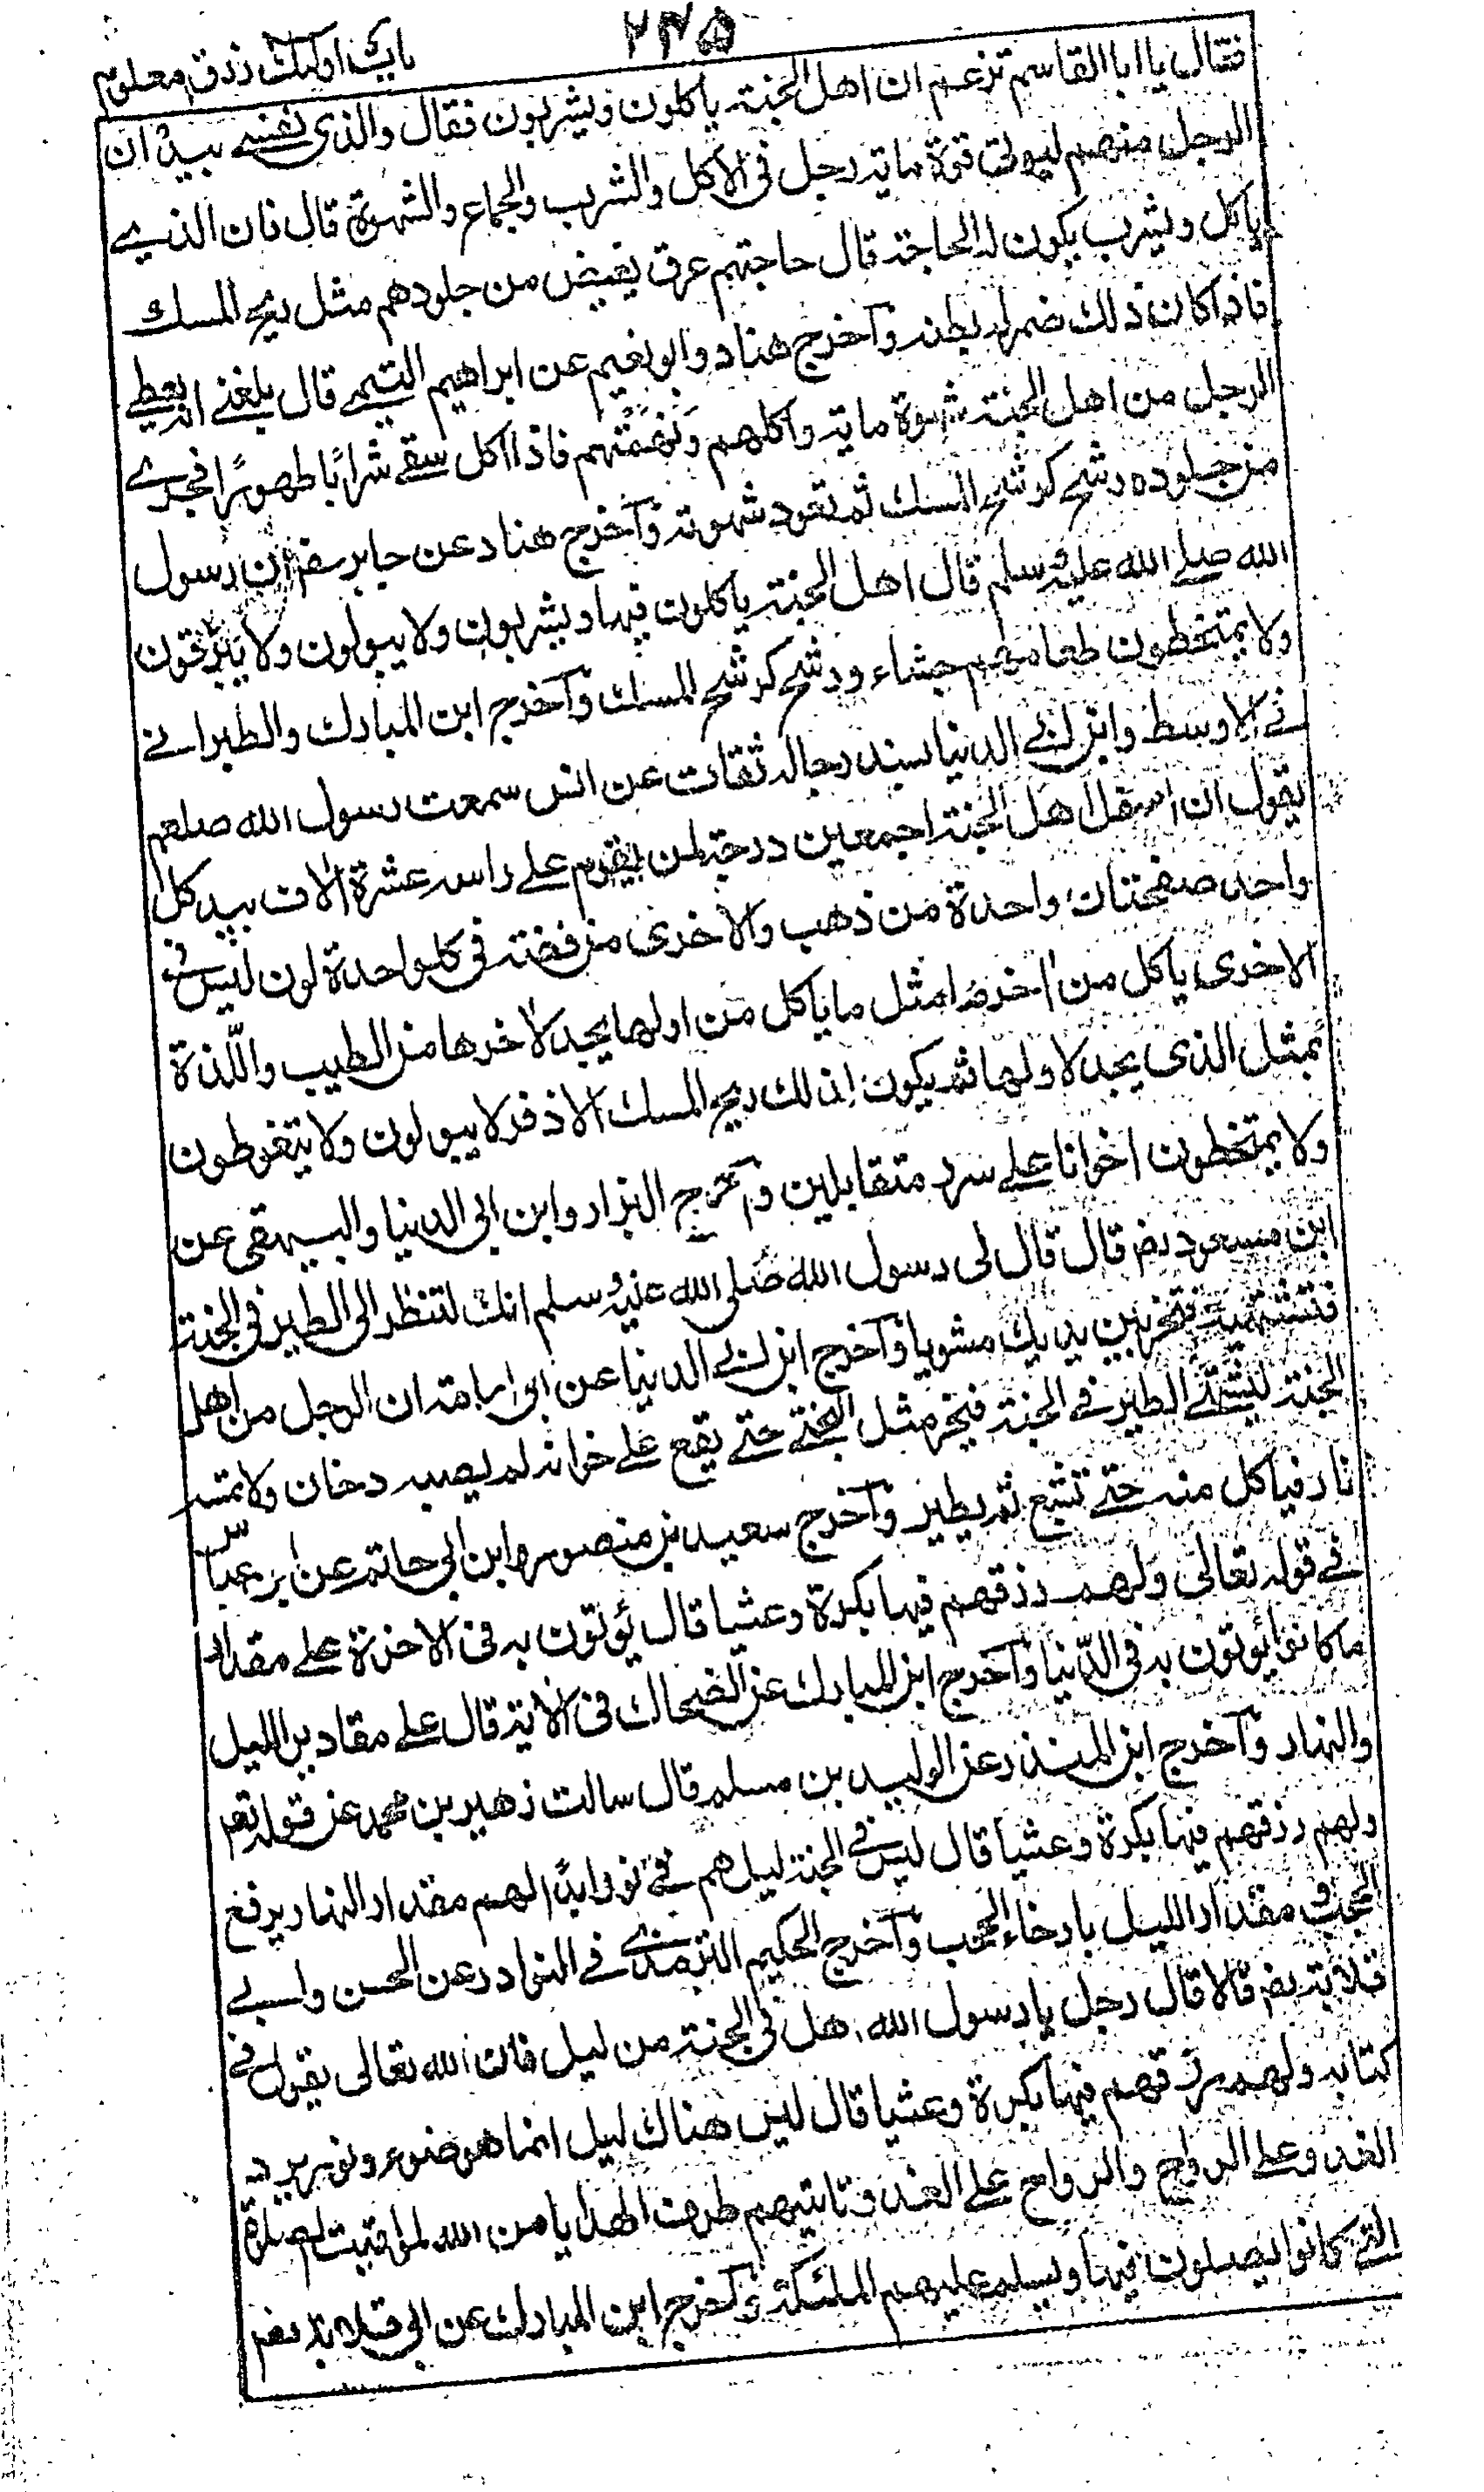 ٢٣٥
باب اولئك رزق معلوم
فقال يا ابا القاسم تزعم ان اهل الجنة ياكلون ويشربون فقال والذي نفسي بيده ان
الرجل منهم ليوتى قوة ماية رجل في الاكل والشرب والجماع والشهوة قال فان الذي
ياكل ويشرب يكون له الحاجة قال حاجتهم عرق يفيض من جلودهم مثل ريح المسك
فاذا كان ذلك ضمر له بطنه وآخرج هناد وابو نعيم عن ابراهيم التيمي قال بلغني انه يعطي
الرجل من اهل الجنة شهوة ماية واكلهم ونهمتهم فاذا اكل سقي شرابًا طهورًا فيجري
من جلوده رشح كرشح المسك ثم تعود شهوته وآخرج هناد عن جابر رضـ ان رسول
الله صلى الله عليه وسلم قال اهل الجنة ياكلون فيها ويشربون ولا يبولون ولا يبزقون
ولا يمتخطون طعامهم جشاء ورشح كرشح المسك وآخرج ابن المبارك والطبراني
في الاوسط وابن ابي الدنيا بسند رجاله ثقات عن انس سمعت رسول الله صلعم
يقول ان اسفل اهل الجنة اجمعين درجة لمن يقوم على راسه عشرة الاف بيد كل
واحد صفحتان واحدة من ذهب والاخرى من فضة في كل واحدة لون ليس في
الاخرى ياكل من اخرها مثل ما ياكل من اولها يجد لاخرها من الطيب واللّذة
بمثل الذي يجد لاولها ثم يكون ذلك ريح المسك الاذفر لا يبولون ولا يتغوطون
ولا يمتخطون اخوانا على سرر متقابلين وآخرج البزار وابن ابي الدنيا والبيهقي عن
ابن مسعود رضـ قال قال لي رسول الله صلى الله عليه وسلم انك لتنظر الى الطير في الجنة
فتشتهيه فيخر بين يديك مشويا وآخرج ابن ابي الدنيا عن ابي امامة ان الرجل من اهل
الجنة ليشتهي الطير في الجنة فيخر مثل البختي حتى يقع على خوانه لم يصبه دخان ولا تمسه
نار فياكل منه حتى تشبع ثم يطير وآخرج سعيد بن منصور وابن ابي حاتم عن ابن عباس
في قوله تعالى ولهم رزقهم فيها بكرة وعشيا قال يؤتون به في الاخرة على مقدار
ما كانوا يؤتون به في الدّنيا وآخرج ابن المبارك عن الضحاك في الاية قال على مقادير الليل
والنهار وآخرج ابن المنذر عن الوليد بن مسلم قال سالت زهير بن محمد عن قوله تعـ
ولهم رزقهم فيها بكرة وعشيا قال ليس في الجنة ليل هم في نور ابدًا لهم مقدار النهار يرفع
الحجب ومقدار الليل بارخاء الحجب وآخرج الحكيم الترمذي في النوادر عن الحسن وابي
قلابة رضـ قالا قال رجل يا رسول الله هل في الجنة من ليل فان الله تعالى يقول في
كتابه ولهم رزقهم فيها بكرة وعشيا قال ليس هناك ليل انما هو ضوء ونور يرد
الغدو على الرواح والرواح على الغدو وتاتيهم طرف الهدايا من الله لمواقيت الصلوة
التي كانوا يصلون فيها ويسلم عليهم الملئكة وآخرج ابن المبارك عن ابي قلابة رضـ